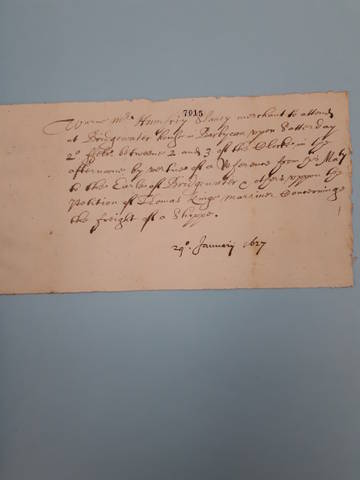 7015
Warne Mr. Humfrey Slaney merchant to attend
at Bridgewater house in Barbycan uppon Satterday
2o Febr. betweene 2 and 3 of the Clocke in the
afternoone by vertue of a Reference from his Maty
to the Earle of Bridgewater & others uppon the
Petition of Thomas Kinge marriner Concerninge
the freight of a Shippe.
29o. January 1627